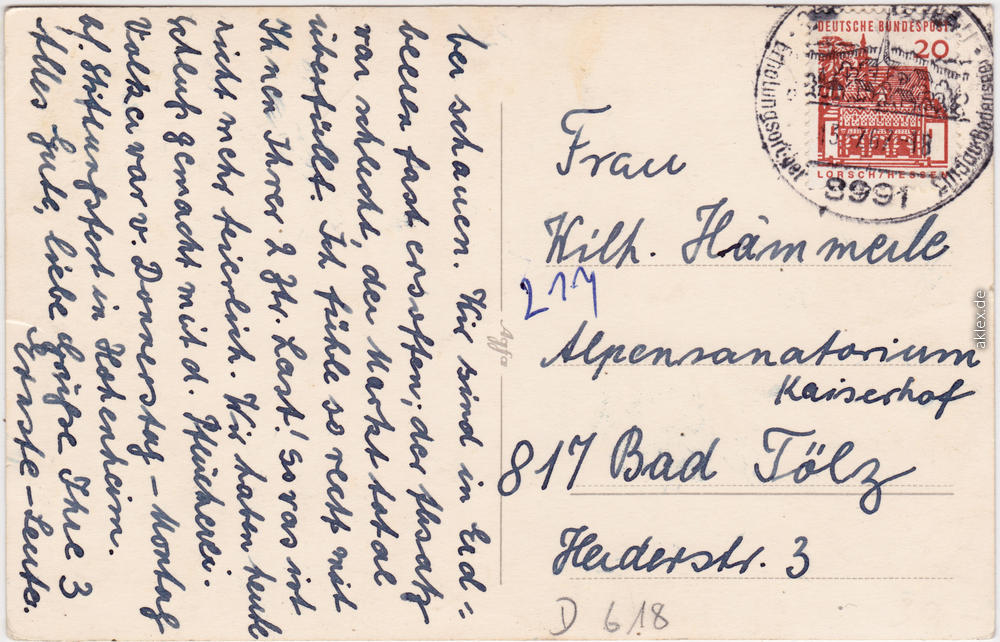 ber schauen. Wir sind in Erd=
beeren fast ersoffen; der Umsatz
war schlecht, der Markt total
überfüllt. Ich fühle so recht mit
Ihnen Ihrer 2 Ztr. Last! So was ist
nicht mehr feierlich. Wir haben heute
Schluß gemacht mit d. Pflückerei.
Volker war v. Donnerstag – Montag
b/. Stiftungsfest in Hohenheim.
Alles Gute, liebe Grüße Ihre 3
Ernste-Leute.
Agfa
DEUTSCHE BUNDESPOST
20
LORSCH/HESSEN
8991
Frau
Wilh. Hämmerle
214
Alpensanatorium
Kaiserhof
817 Bad Tölz
Heiderstr. 3
D 618
aklex.de